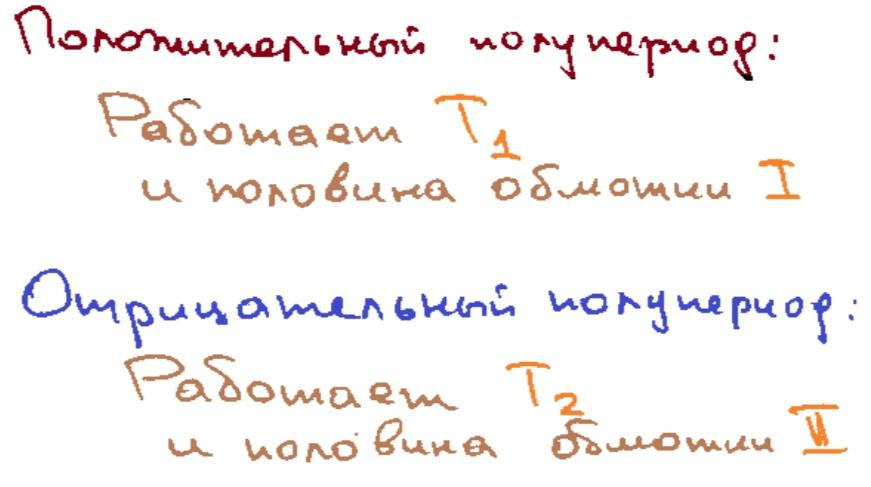 Положительный полупериод:
Работает T1
и половина обмотки I
Отрицательный полупериод:
Работает T2
и половина обмотки II